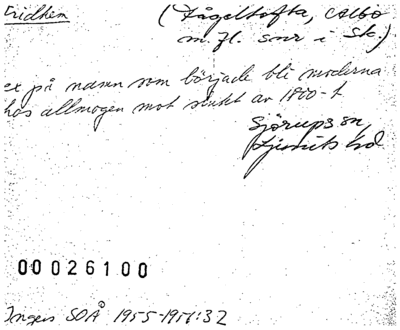 Fridhem
(Fågeltofta, Albo
m.fl. snr i Sk.)
ex på namn som började bli moderna
hos allmogen mot slutet av 1800-t.
Sjörups sn,
Ljunits hd
00026100
Ingers SOÅ 1955-1956:32